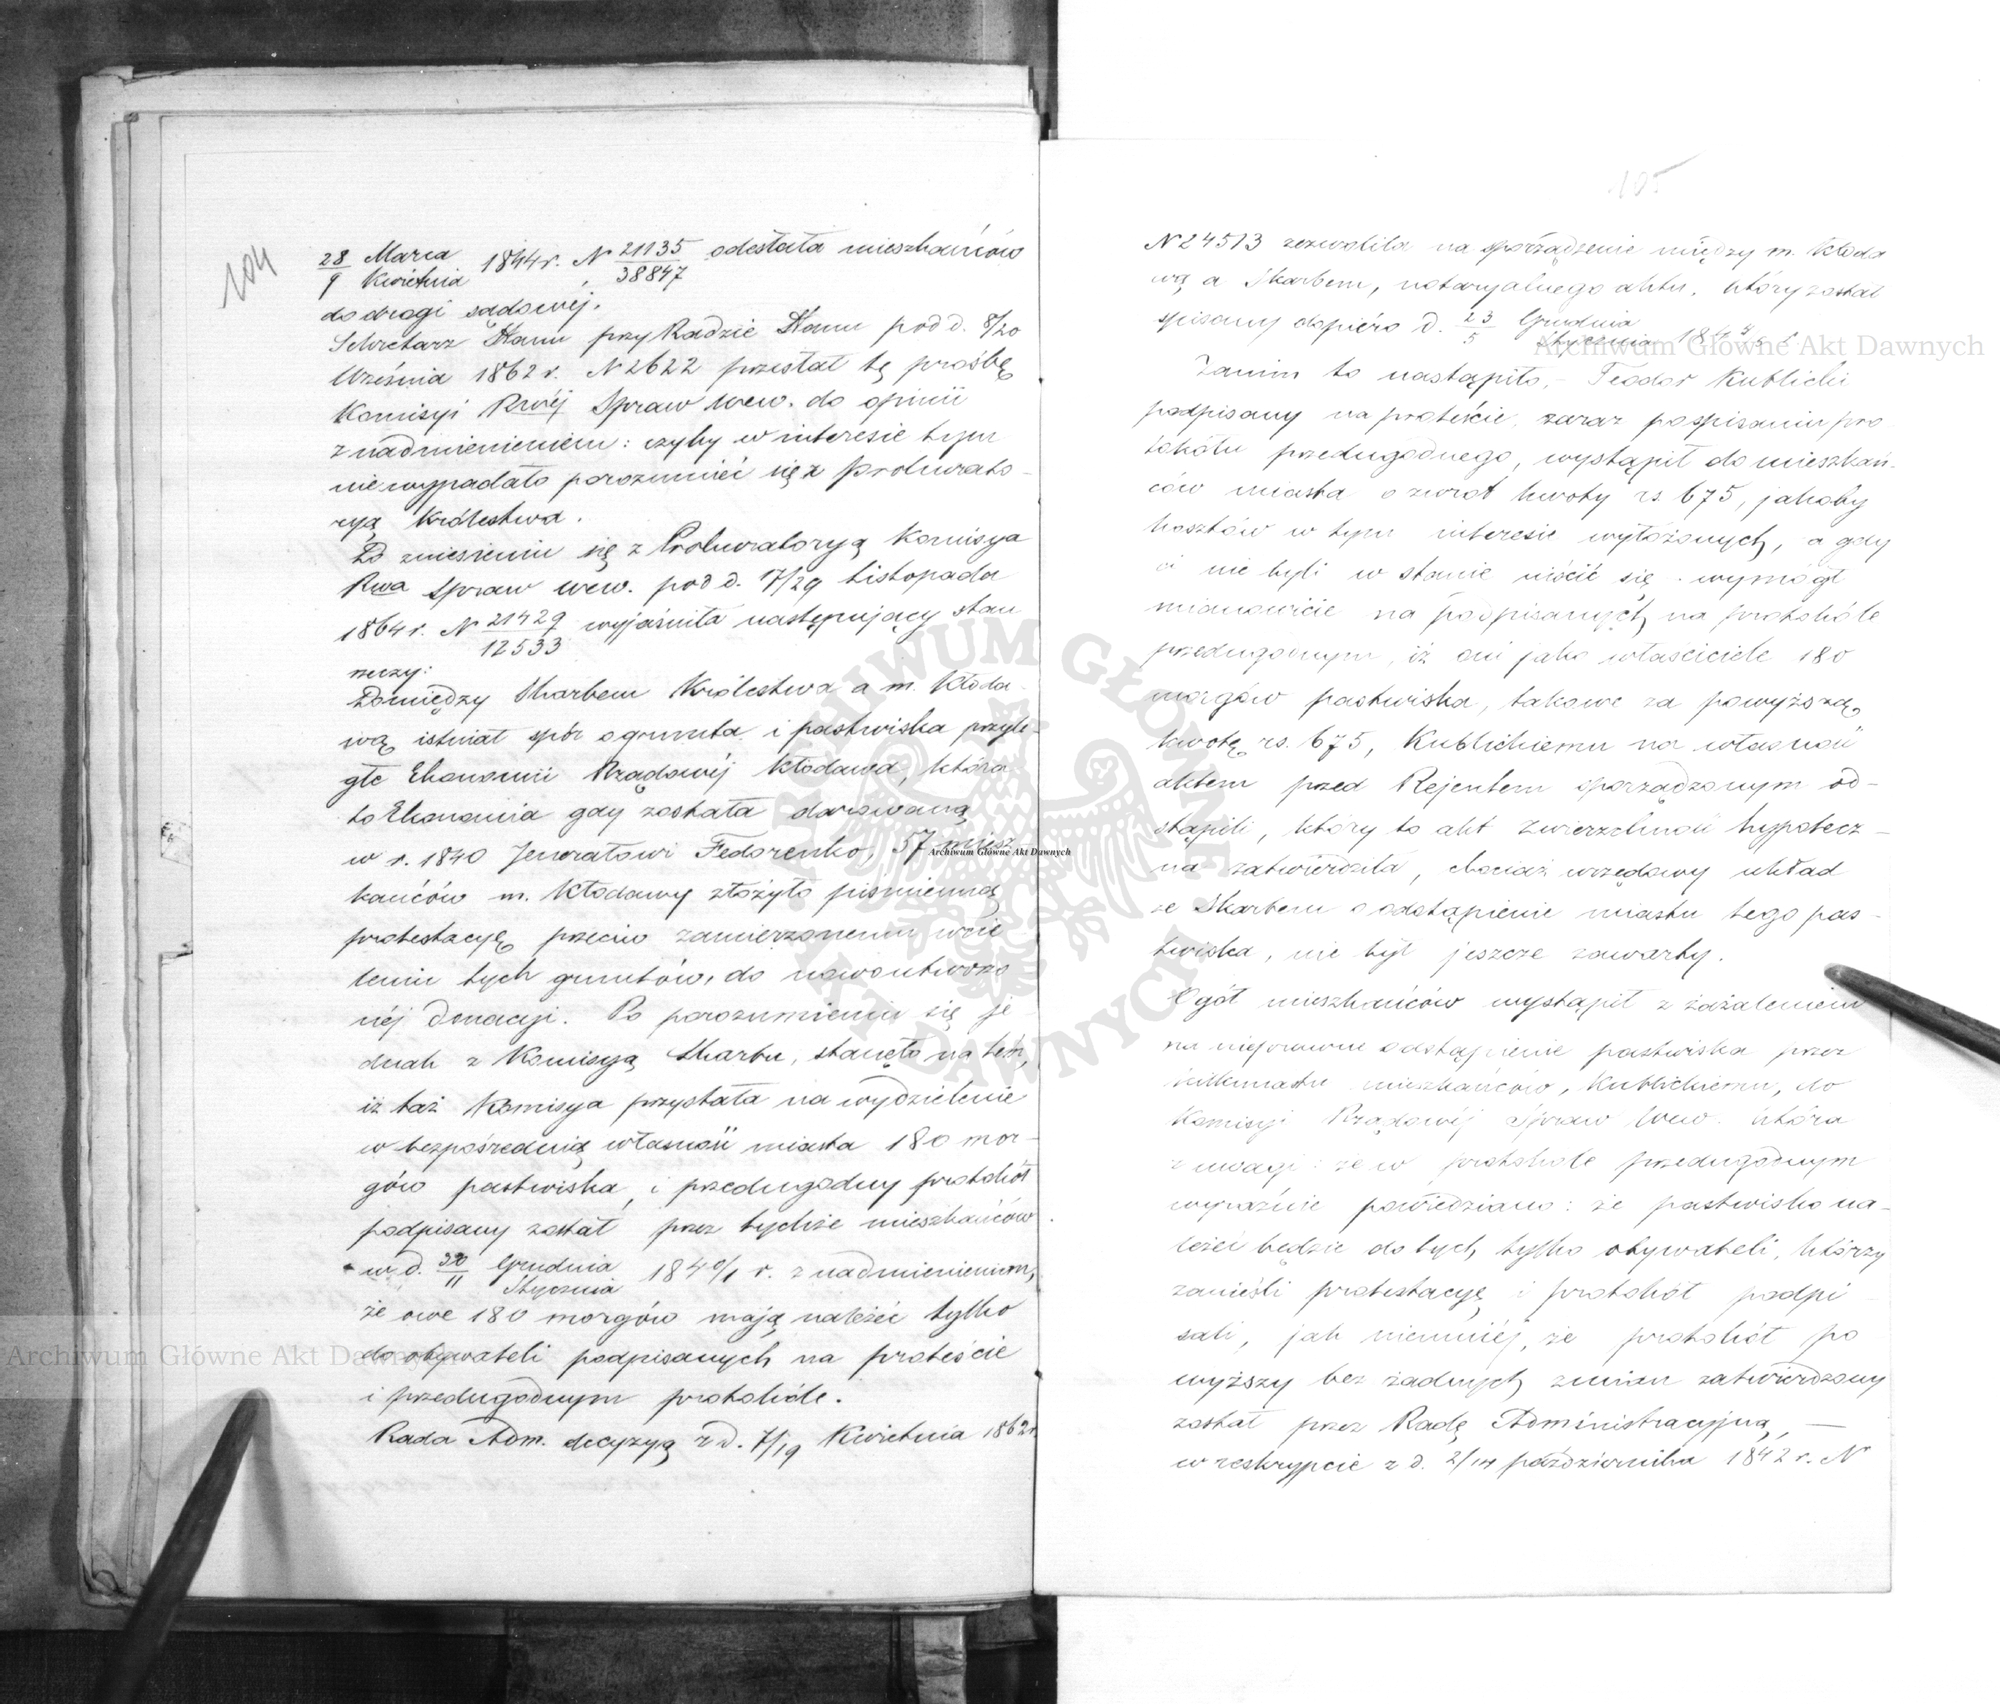 104
28/9 Marca/Kwietnia 1844 r. N 21135/38847 odesłała mieszkańców
do drogi sądowej.
Sekretarz Stanu przy Radzie Stanu pod d. 8/20
Września 1862 r. N 2622 przesłał tę prośbę
Komisyi Rwéj Spraw Wew. do opinii
z nadmienieniem: czyby w interesie tym
nie wypadało porozumieć się z Prokurato-
ryą Królestwa.
Po zniesieniu się z Prokuratoryą Komisya
Rwa Spraw Wew. pod d. 17/29 Listopada
1864 r. N 21429/12533 wyjaśniła następujący stan
rzeczy:
Pomiędzy Skarbem Królestwa a m. Kłoda-
wą istniał spór o grunta i pastwiska przyle-
głe Ekonomii Rządowéj Kłodawa, która
to Ekonomia gdy została darowaną
w r. 1840 Jenerałowi Fedorenko, 57 miesz
kańców m. Kłodawy złożyło piśmienną
protestacyę przeciw zamierzonemu wcie
leniu tych gruntów, do nowoutworzo
néj Donacyi. Po porozumieniu się je-
dnak z Komisyą Skarbu, stanęło na tém,
iż taż Komisya przystała na wydzielenie
w bezpośrednią własność miasta 180 mor-
gów pastwiska, i przedugodny protokół
podpisany został przez tychże mieszkańców
w d. 30/11 Grudnia/Stycznia 1840/1 r. z nadmienieniem,
że owe 180 morgów mają należéć tylko
do obywateli podpisanych na proteście
i przedugodnym protokóle.
Rada Adm. decyzyą z d. 7/19 Kwietnia 1862 r.
105
N 24513 zezwoliła na sporządzenie między m. Kłoda
wą a Skarbem, notaryalnego aktu, który został
spisany dopiéro d. 23/5 Grudnia/Stycznia 1844/5 r.
Zanim to nastąpiło, Teodor Kublicki
podpisany na proteście, zaraz po spisaniu pro
tokółu przedugodnego, wystąpił do mieszkań-
ców miasta o zwrot kwoty rs 675, jakoby
kosztów w tym interesie wyłożonych, a gdy
ci nie byli w stanie uiścić się, wymógł
mianowicie na podpisanych na protokóle
przedugodnym, iż oni jako właściciele 180
morgów pastwiska, takowe za powyższą
kwotę rs. 675, Kublickiemu na własność
aktem przed Rejentem sporządzonym od-
stąpili, który to akt Zwierzchność hypotecz-
na zatwierdziła, chociaż urzędowy układ
ze Skarbem o odstąpienie miastu tego pas-
twiska, nie był jeszcze zawarty.
Ogół mieszkańców wystąpił z zażaleniem
na nieprawne odstąpienie pastwiska przez
kilkunastu mieszkańców, Kublickiemu, do
Komisyi Rządowéj Spraw Wew. która
z uwagi: że w protokóle przedugodnym
wyraźnie powiedziano: że pastwisko na-
leżeć będzie do tych tylko obywateli, którzy
zanieśli protestacyę i protokół podpi
sali, jak niemniéj, że protokół po
wyższy bez żadnych zmian zatwierdzony
został przez Radę Administracyjną, —
w reskrypcie z d. 2/14 Października 1842 r. N
Archiwum Główne Akt Dawnych
Archiwum Główne Akt Dawnych
Archiwum Główne Akt Dawnych
ARCHIWUM GŁÓWNE AKT DAWNYCH